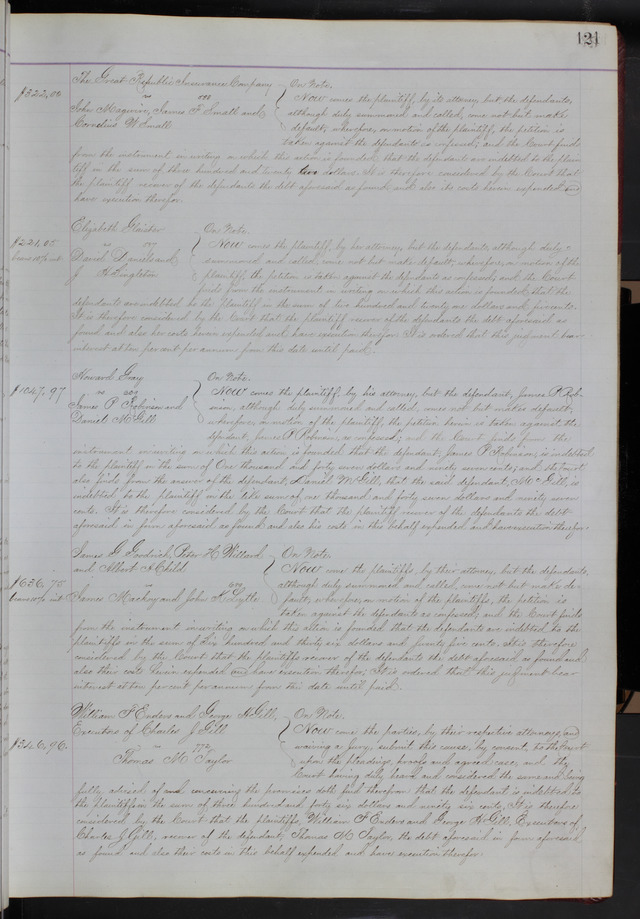 121
$322,00
The Great Republic Insurance Company On Note.
vs
John Maguire, James F Small and Now comes the plaintiff, by its attorney, but the defendants,
Cornelius W Small although duly summoned and called, come not but make
default; wherefore, on motion of the plaintiff, the petition is
taken against the defendants as confessed; and the Court finds
from the instrument in writing on which this action is founded, that the defendants are indebted to the plain-
tiff in the sum of three hundred and twenty two dollars. It is therefore considered by the Court that
the plaintiff recover of the defendants the debt aforesaid as found and also its costs herein expended and
have execution therefor.
Elizabeth On Note.
$221,05
vs
David and Now comes the plaintiff, by her attorney, but the defendants, although duly
J Singleton summoned and called, come not but make default; wherefore, on motion of the
plaintiff, the petition is taken against the defendants as confessed and the Court
finds from the instrument in writing on which this action is founded, that the
defendants are indebted to the Plaintiff in the sum of two hundred and twenty one dollars and five cents.
It is therefore considered by the Court that the plaintiff recover of the defendants the debt aforesaid as
found and also her costs herein expended and have execution therefor. It is ordered that this judgment bear
interest at ten per cent per annum from this date until paid.
Howard Gray On Note.
$1047,97
vs
James P Robinson and Now comes the plaintiff by his attorney, but the defendant, James P Rob-
Daniel McGill inson, although duly summoned and called, comes not but makes default;
wherefore, on motion of the plaintiff, the petition herein is taken against the
defendant, James P Robinson, as confessed; and the Court finds from the
instrument in writing on which this action is founded that the defendant, James P Robinson, is indebted
to the plaintiff in the sum of One thousand and forty seven dollars and ninety seven cents; and the Court
also finds from the answer of the defendant Daniel McGill, that the said defendant, McGill, is
indebted to the plaintiff in the like sum of one thousand and forty seven dollars and ninety seven
cents. It is therefore considered by the Court that the plaintiff recover of the defendants the debt
aforesaid in form aforesaid as found and also his costs in this behalf expended and have execution therefor.
James G Goodrich, Peter H Willard On Note.
and Albert A Childs Now come the plaintiffs, by their attorney, but the defendants,
$636,75
vs although duly summoned and called, come not but make de-
James Mackey and John H Lytle fault; wherefore, on motion of the plaintiffs, the petition is
taken against the defendants as confessed; and the Court finds
from the instrument in writing on which this action is founded that the defendants are indebted to the
plaintiffs in the sum of Six hundred and thirty six dollars and seventy five cents. It is therefore
considered by the Court that the plaintiffs recover of the defendants the debt aforesaid as found and
also their costs herein expended and have execution therefor. It is ordered that this judgment bear
interest at ten per cent per annum from this date until paid.
William F Enders and George H Gill, On Note.
Executors of Charles J Gill Now come the parties, by their respective attorneys, and
$346,96.
vs waiving a jury, submit this cause, by consent, to the Court
Thomas M Taylor upon the pleadings, proofs and agreed case, and the
Court having duly heard and considered the same and being
fully advised of and concerning the premises doth find therefrom that the defendant is indebted to
the Plaintiffs in the sum of three hundred and forty six dollars and ninety six cents, It is therefore
considered by the Court that the plaintiffs, William F Enders and George H Gill, Executors of
Charles J Gill, recover of the defendant, Thomas M Taylor, the debt aforesaid in form aforesaid
as found and also their costs in this behalf expended and have execution therefor.